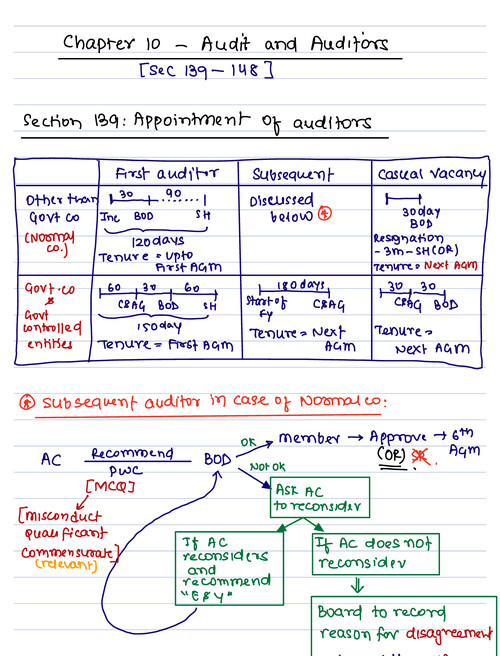 Chapter 10 - Audit and Auditors
[Sec 139-148]
Section 139: Appointment of auditors
First auditor
Subsequent
Casual Vacancy
Other than
Govt co
(Normal
co.)
30 90
Inc BOD SH
120 days
Tenure = Upto
First AGM
Discussed
below *
30 day
BOD
Resignation
- 3m - SH (OR)
Tenure = Next AGM
Govt. co
&
Govt
controlled
entities
60 30 60
C&AG BOD SH
150 day
Tenure = First AGM
180 days
Start of
FY
C&AG
Tenure = Next
AGM
30 30
C&AG BOD
Tenure =
Next AGM
* Subsequent auditor in case of Normal co:
AC Recommend BOD
PWC
[MCQ]
[Misconduct
Qualificant
Commensurate]
(relevant)
OK
member → Approve → 6th
AGM
(OR)
SR
Not OK
Ask AC
to reconsider
If AC
reconsiders
and
recommend
"E&Y"
If AC does not
reconsider
Board to record
reason for disagreement